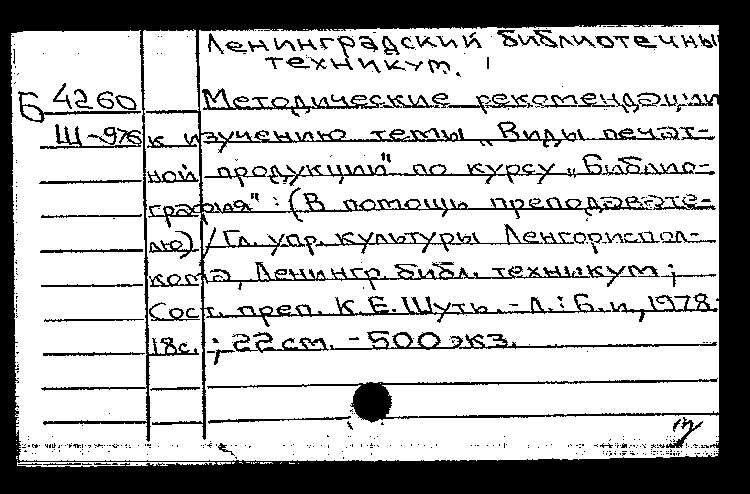 Ленинградский библиотечны
техникум.
Б 4260 Методические рекомендации
Ш-976 к изучению темы „Виды печат-
ной продукции" по курсу „Библио-
графия" : (В помощь преподавате-
лю) / Гл. упр. культуры Ленгориспол-
кома, Ленингр. библ. техникум ;
Сост. преп. К.Е. Шуть. - Л. : Б. и., 1978.
18 с. ; 22 см. - 500 экз.